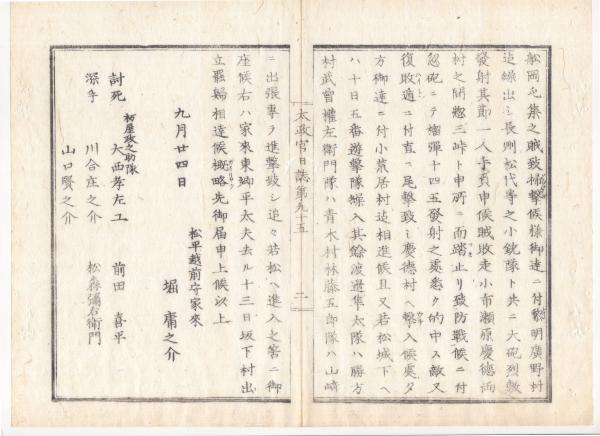 船岡屯集之賊致掃撃候様御達ニ付翌明廣野村
迠繰出シ長州松代等之小銃隊ト共ニ大砲烈敷
發射其節一人手負申候賊敗走小布瀬原慶德両
村之間惣三峠ト申所ニ而踏止リ致防戰候ニ付
忽砲ニテ榴彈十四五發射之處悉ク的中ス敵又
復敗適ニ付直ニ尾撃致シ慶德村ヘ撃入候處夕
方御達ニ付小荒居村迠相進候且又若松城下ヘ
ハ十日五番遊撃隊繰入其餘渡邉隼太隊ハ勝方
村武曽權左衛門隊ハ青木村林藤五郎隊ハ山崎
太政官日誌第九十五
二
ニ出張專ラ進撃致シ追々若松ヘ進入之筈ニ御
座候右ハ家來東郷平太夫去ル十三日坂下村出
立罷歸相達候概略先御届申上候以上
九月廿四日
松平越前守家來
堀庸之介
討死
杤屋政之助隊
大西孝左エ
前田喜平
深手
川合庄之介
松森彌右衛門
山口賢之介